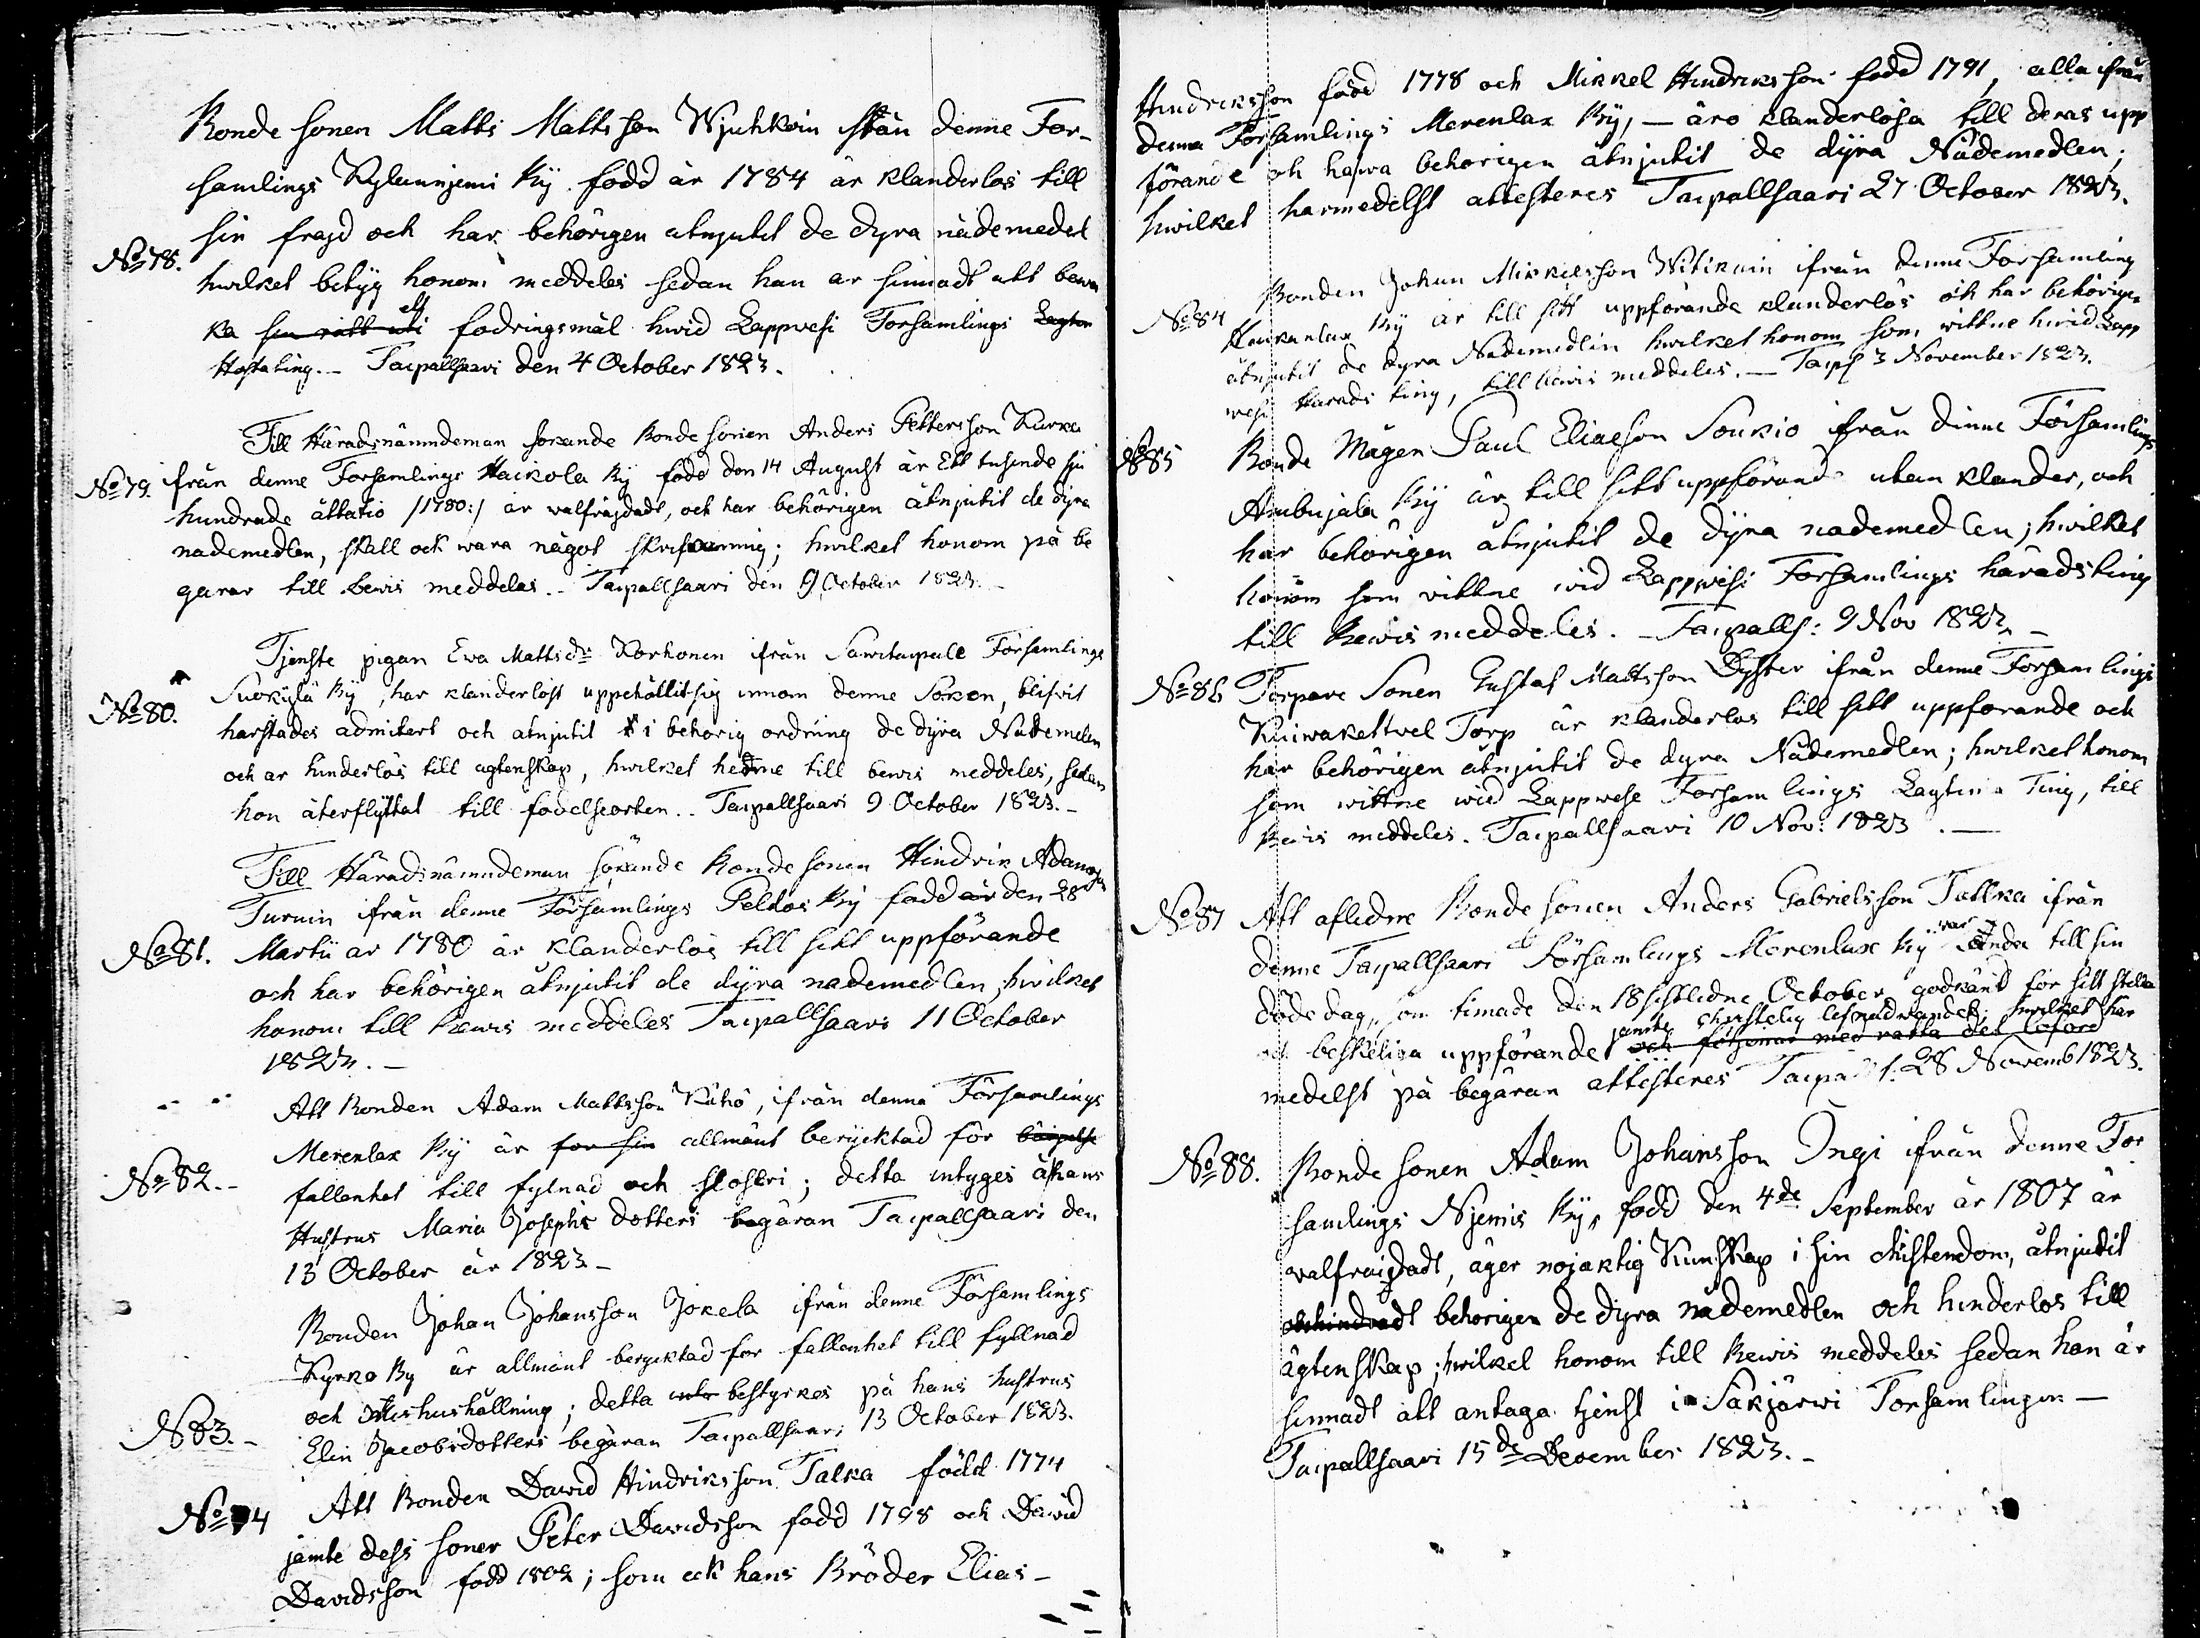 Bonde sonen Matts Matts son Wjuhkoin ifrån denne För-
samlings Kyläinjemi By. född år 1784 är klanderlös till
sin frajd och har behörigen åtnjutit de dyra nådemedel
No 78. hwilket betyg honom meddeles sedan han är sinnadt att bewa
ka sin rätt uti ett fodringsmål hwid Lappwesi Församlings Lagtin
Höstating. - Taipallsaari den 4 October 1823.
Till Häradsnämndeman sökande Bonde sonen Anders Pettersson Kurka
No 79. ifrån denne Församlings Haikola By född den 14 August år Ett tusende sju
hundrade åttatio /1780:/ är walfrägdadt, och har behörigen åtnjutit de dyra
nademedlen, skall och wara något skrifkunnig; hwilket honom på be
garar till bewis meddelas. - Taipallsaari den 9 October 1823.
Tjenste pigan Ewa Mattsdr Korhonen ifrån Sawitaipale Församlings
No 80. Suokylä By, har klanderlöst uppehållit sig innom denne Soken, blifwit
härstädes admitert och åtnjutit i behörig ordning de dyra Nådemedlen
och är hinderlös till ägtenskap, hwilket henne till bewis meddeles, sedan
hon återflyttat till födelseorten. - Taipallsaari 9 October 1823. -
Till Häradsnämndeman sökande Bonde sonen Hindrik Adamsson
Turuin ifrån denne Församlings Peldos By född år den 28
No 81. Martii år 1780 är klanderlös till sitt uppförande
och har behörigen åtnjutit de dyra nademedlen, hwilket
honom till Bewis meddeles Taipallsaari 11 October
1823. -
Att Bonden Adam Mattsson Kähö, ifrån denna Församlings
Merenlax By är för sin allmänt beryktad för
No 82. - fallenhet till fylnad och slöseri; detta intyges å hans
Hustrus Maria Josephs dotters begäran Taipallsaari den
13 October år 1823 -
Bonden Johan Johansson Jokela ifrån denne Församlings
Kyrko By är allmänt beryktad för fallenhet till fyllnad
No 83. - och hushållning; detta bestyrkes på hans hustrus
Elin Jacobsdotters begäran Taipallsaari 13 October 1823.
No 4 Att Bonden Dawid Hindriksson Talka född 1774
jämte dess soner Peter Davidsson född 1798 och Dawid
Davidsson född 1802; som och hans Bröder Elias -
Hindriksson född 1778 och Mikkel Hindriksson född 1791, alla ifrån
denna Församlings Merenlax By, - äro klanderlösa till deras upp
förande och hafwa behörigen åtnjutit de dyra Nådemedlen;
hwilket harmedelst attesteres Taipallsaari 27 October 1823.
No 84 Bonden Johan Mikkelsson Witikain ifrån denne Församling
Haukanlax By är till sitt uppförande klanderlös och har behörigen
åtnjutit de dyra Nådemedlen hwilket honom som wittne hwid Lapp
wesi Harads ting, till bewis meddeles. - Taips 3 November 1823.
No 85 Bonde Mågen Paul Eliaeson Soukio ifrån denne Församlings
Ambujala By är till sitt uppförande utan klander, och
har behörigen åtnjutit de dyra nademedlen; hwilket
honom som vittne wid Lappwesi Församlings häradsting
till Bewis meddeles. - Taipalls: 9 Nov 1823. -
No 86 Torpare Sonen Gustaf Mattsson Dyster ifrån denne Församlings
Kuiwaketwel Torp är klanderlös till sitt uppförande och
har behörigen åtnjutit de dyra Nådemedlen; hwilket honom
som wittne wid Lappwese Församlings Lagtima Ting, till
Bewis meddeles. Taipallsaari 10 Nov: 1823. -
No 87 Att aflidne Bonde sonen Anders Gabrielsson Tallka ifrån
denne Taipallsaari Församlings Merenlax By war ända till sin
döde dag, som timade den 18 sistledne October godkänd för sitt stilla
och beskeliga uppförande jämte christelig lefnadwandel; hwilket här
och
medelst på begäran attesteres Taipalls: 28 Novemb 1823.
No 88. Bonde sonen Adam Johansson Ingi ifrån denne För
samlings Njemis By, född den 4de September år 1807 är
walfraigdadt, äger nöjaktig Kunskap i sin christendom, åtnjutit
obehindradt behörigen de dyra nådemedlen och hinderlös till
ägtenskap; hwilket honom till Bewis meddeles sedan han är
sinnadt att antaga tjenst i Säkjärwi Församlingen -
Taipallsaari 15de December 1823. -